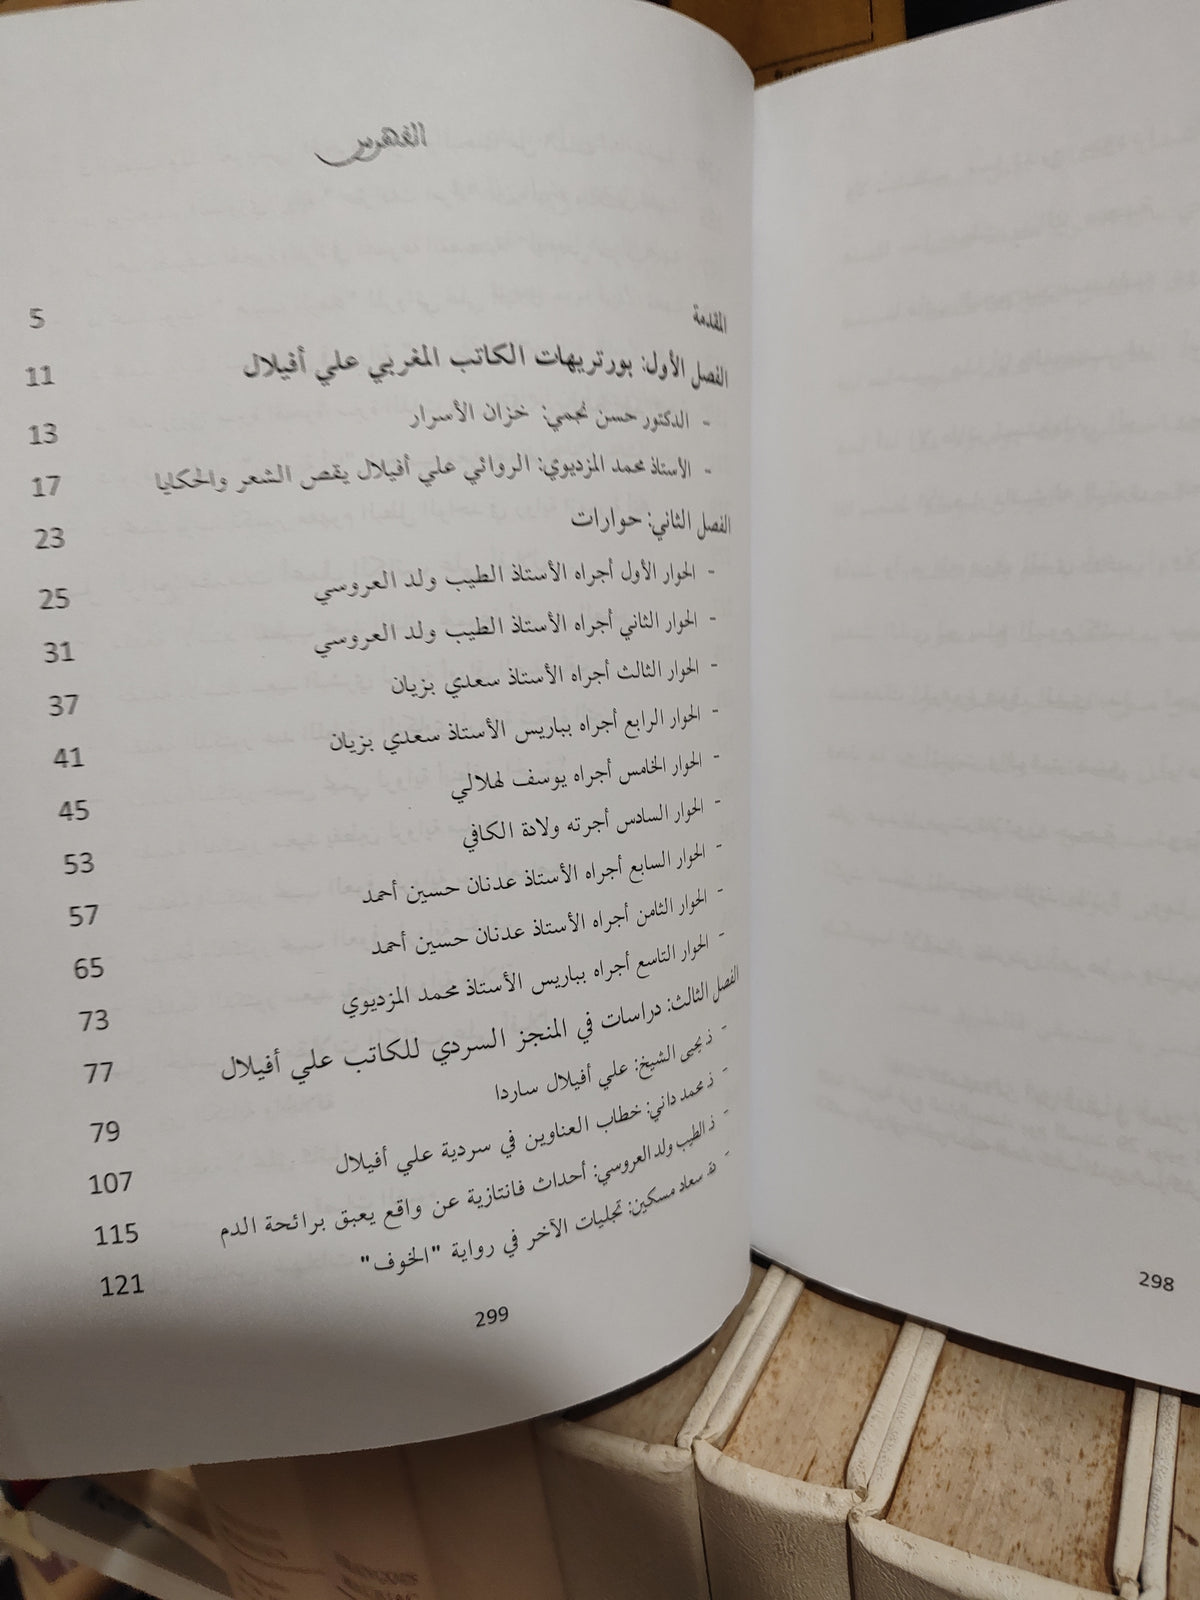 الفهرس
المقدمة 5
الفصل الأول: بورتريهات الكاتب المغربي علي أفيلال 11
- الدكتور حسن نجمي: خزان الأسرار 13
- الأستاذ محمد المزديوي: الروائي علي أفيلال يقص الشعر والحكايا 17
الفصل الثاني: حوارات 23
- الحوار الأول أجراه الأستاذ الطيب ولد العروسي 25
- الحوار الثاني أجراه الأستاذ الطيب ولد العروسي 31
- الحوار الثالث أجراه الأستاذ سعدي بزيان 37
- الحوار الرابع أجراه بباريس الأستاذ سعدي بزيان 41
- الحوار الخامس أجراه يوسف لهلالي 45
- الحوار السادس أجرته ولادة الكافي 53
- الحوار السابع أجراه الأستاذ عدنان حسين أحمد 57
- الحوار الثامن أجراه الأستاذ عدنان حسين أحمد 65
- الحوار التاسع أجراه بباريس الأستاذ محمد المزديوي 73
الفصل الثالث: دراسات في المنجز السردي للكاتب علي أفيلال 77
- ذ يحيى الشيخ: علي أفيلال ساردا 79
- ذ محمد داني: خطاب العناوين في سردية علي أفيلال 107
- ذ الطيب ولد العروسي: أحداث فانتازية عن واقع يعبق برائحة الدم 115
- سعاد مسكين: تجليات الآخر في رواية "الخوف" 121
299
298